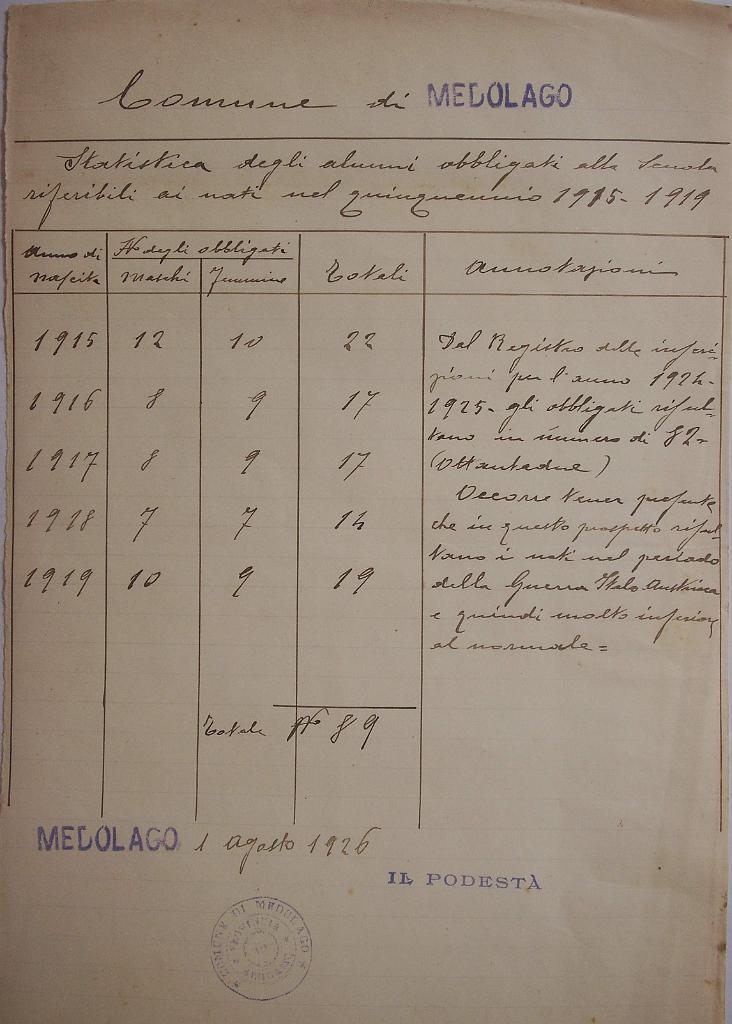 Comune di MEDOLAGO
Statistica degli alunni obbligati alla Scuola
riferibili ai nati nel quinquennio 1915-1919
Anno di nascita No degli obbligati Maschi Femmine Totali Annotazioni
1915 12 10 22
1916 8 9 17
1917 8 9 17
1918 7 7 14
1919 10 9 19
Totale No 89
Dal Registro delle inscri-
zioni per l'anno 1924-
1925- gli obbligati risul-
tano in numero di 82-
(Ottantadue)
Occorre tener presente
che in questo prospetto risul-
tano i nati nel periodo
della Guerra Italo Austriaca
e quindi molto inferiori
al normale=
MEDOLAGO 1 agosto 1926
IL PODESTÀ
COMUNE DI MEDOLAGO
PROVINCIA BERGAMO